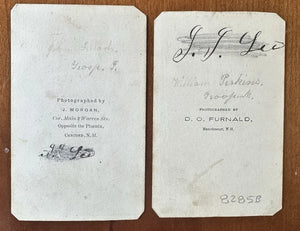 Troop I.
Photographed by
J. MORGAN,
Cor. Main & Warren Sts.
Opposite the Phenix,
CONCORD, N.H.
Lee
J. J. Lee
William Perkins
Troop K.
PHOTOGRAPHED BY
D. O. FURNALD,
Manchester, N.H.
8285B